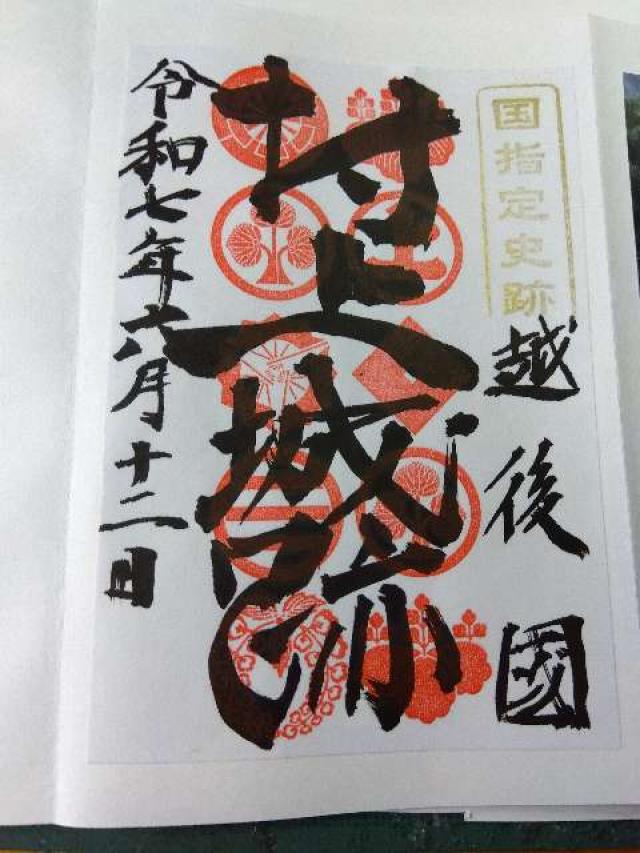 国指定史跡
越後國
村上城跡
令和七年六月十二日